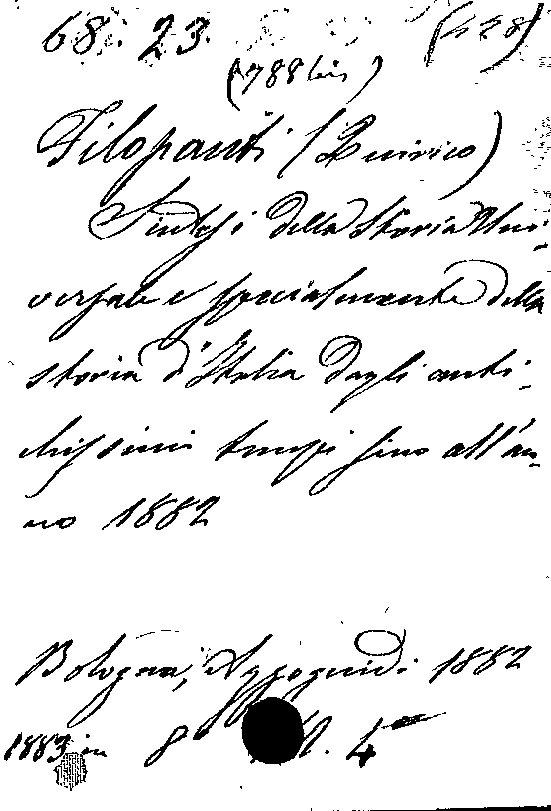 68. 23. (428)
(788 bis)
Filopanti (Quirico)
Sintesi della storia Uni-
versale e specialmente della
storia d'Italia dagli anti-
chissimi tempi fino all'an-
no 1882
Bologna, Azzoguidi 1882
1883 in 8°. 4